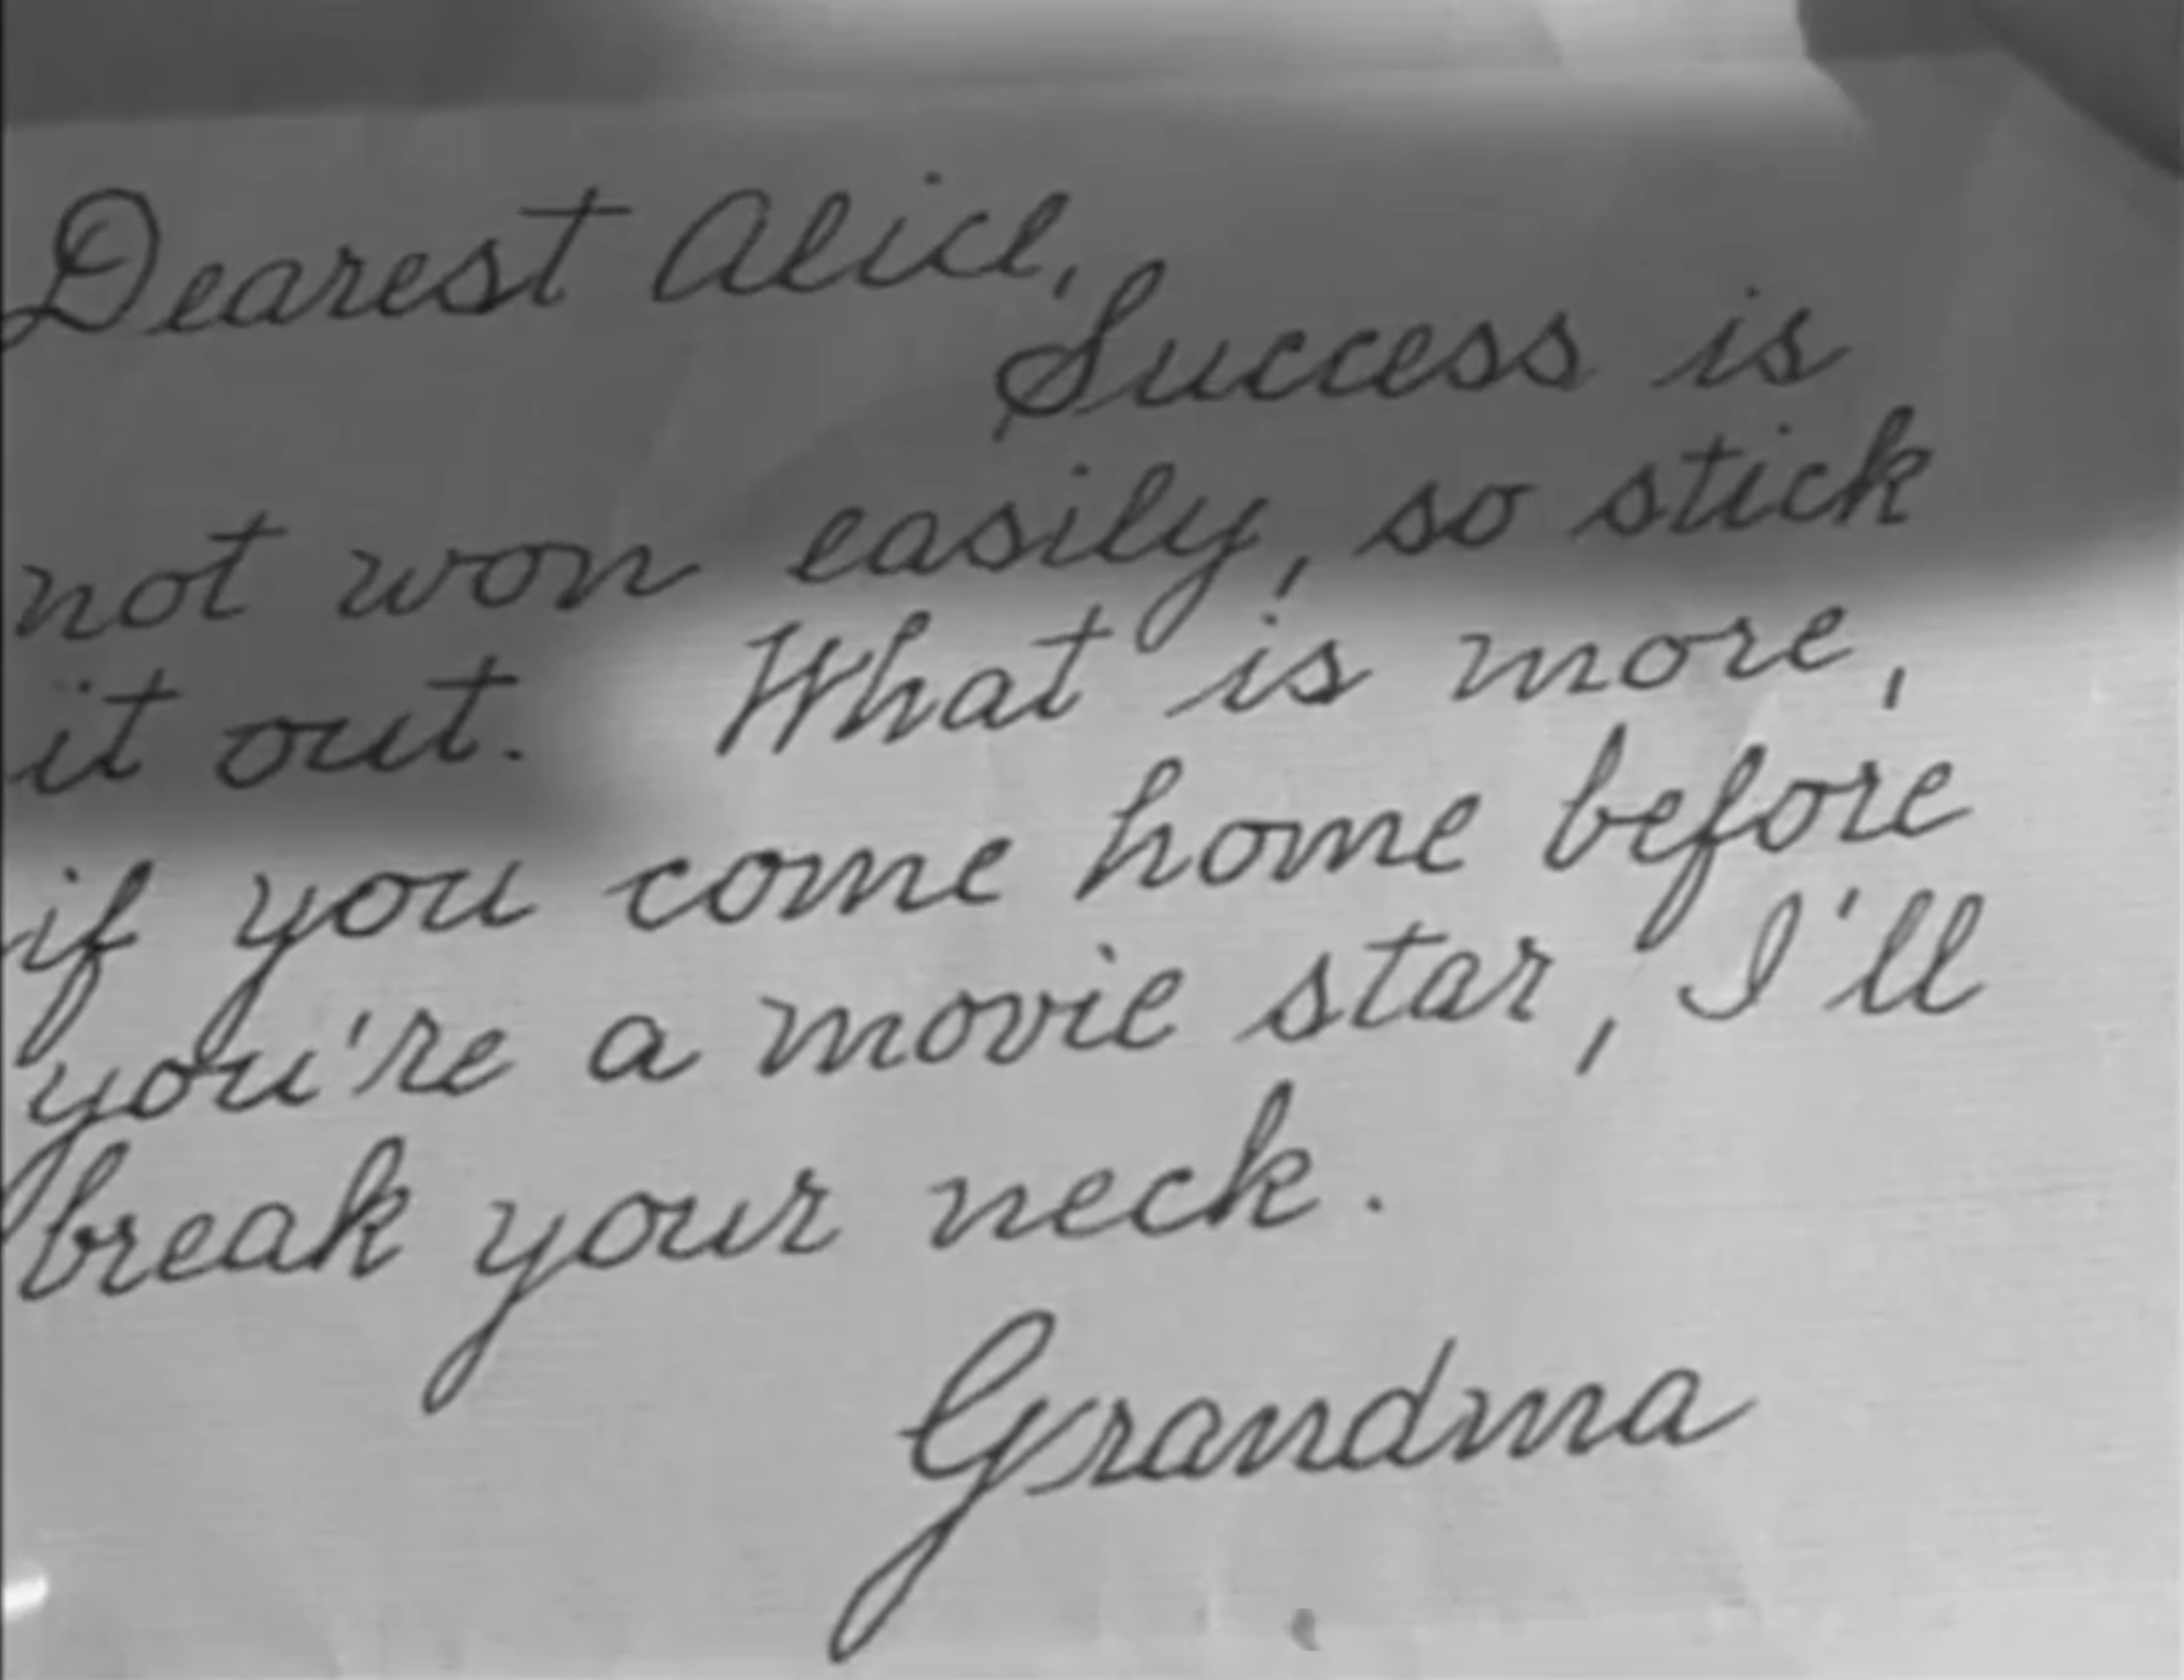 Dearest Alice,
Success is
not won easily, so stick
it out. What is more,
if you come home before
you're a movie star, I'll
break your neck.
Grandma